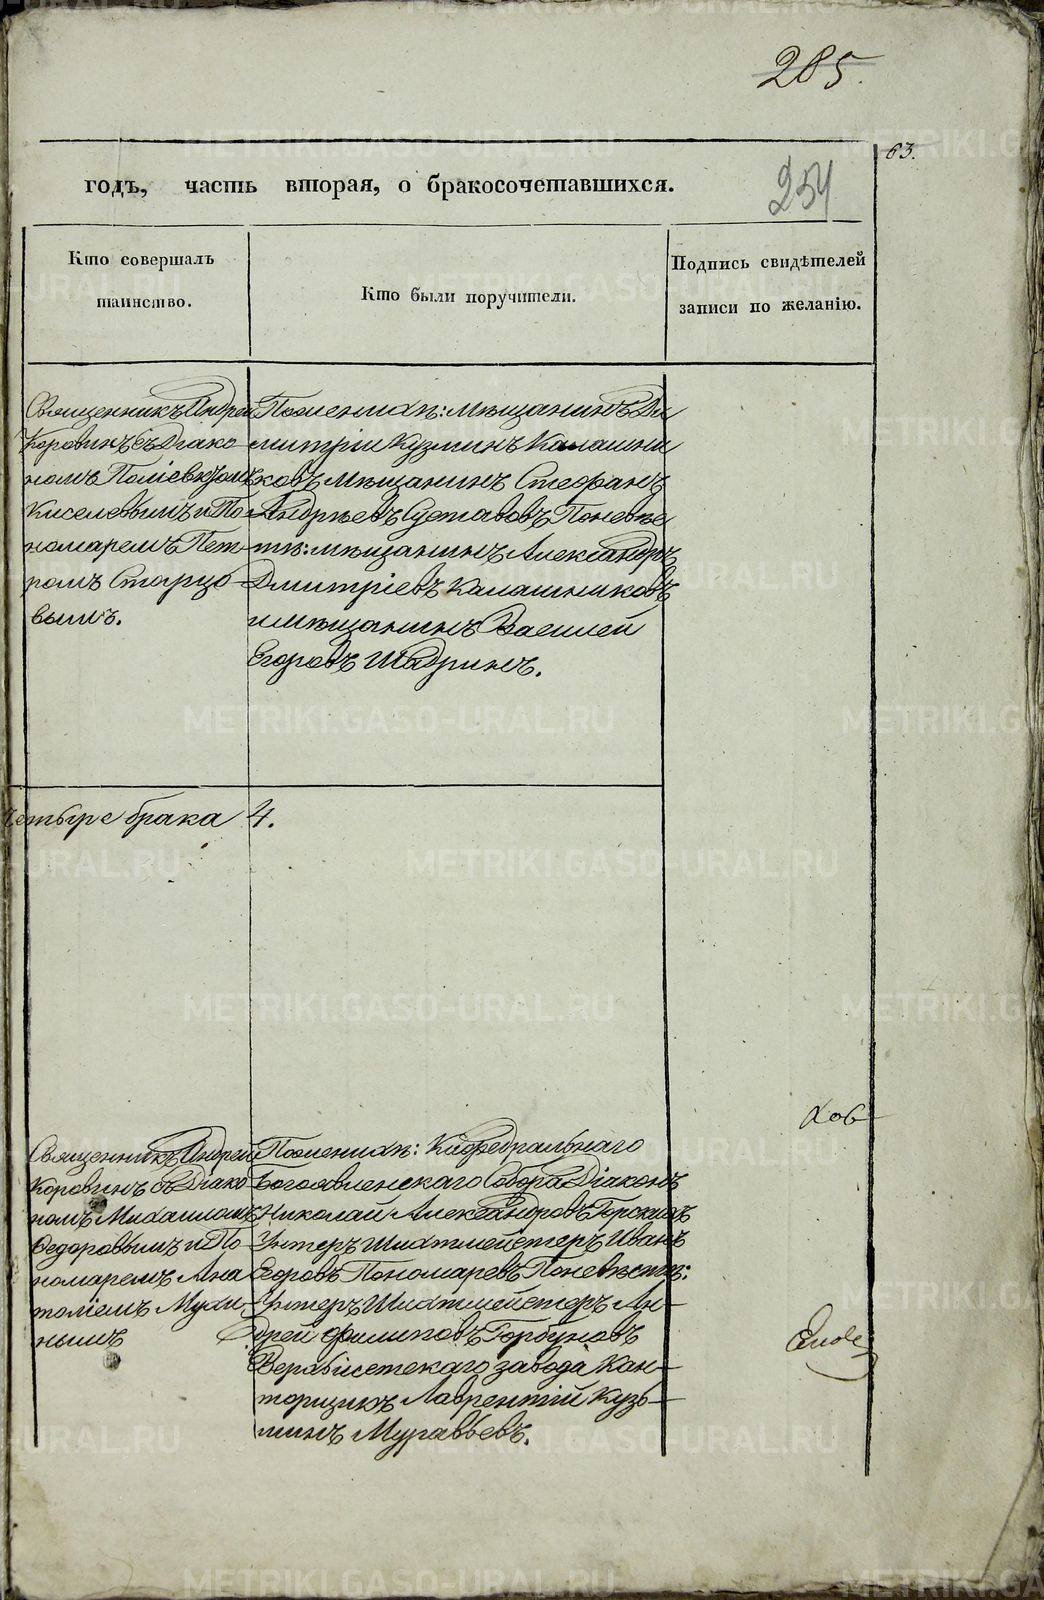 285.
63.
годъ, часть вторая, о бракосочетавшихся.
254
Кто совершалъ
таинство.
Кто были поручители.
Подпись свидѣтелей
записи по желанію.
Священникъ Андрей
Коровинъ съ Діако
номъ Поліевктомъ
Киселевымъ и По
номаремъ Пет
ромъ Старцо
вымъ.
По женихѣ: мѣщанинъ Ди
митріи Кузминъ Калашни
ковъ мѣщанинъ Стефанъ
Андрѣевъ Суставовъ По невѣс
тѣ: мѣщанинъ Александръ
Дмитріевъ Калашниковъ
и мѣщанинъ Василей
Егоровъ Шадринъ.
четыре брака 4.
Священникъ Андрей
Коровинъ съ Діако
номъ Михаиломъ
Федоровымъ и По
номаремъ Ана
толіемъ Мухи
нымъ
По женихѣ: Кафедральнаго
Богоявленскаго Собора Діаконъ
Николай Александровъ Горскихъ
Унтеръ Шихтмейстеръ Иванъ
Егоровъ Пономаревъ По невѣстѣ:
Унтеръ Шихтмейстеръ Ан-
дрей Филиповъ Горбуновъ
Верхъисетскаго завода Кан-
торщикъ Лаврентій Кузь-
минъ Муравьевъ.
METRIKI.GASO-URAL.RU